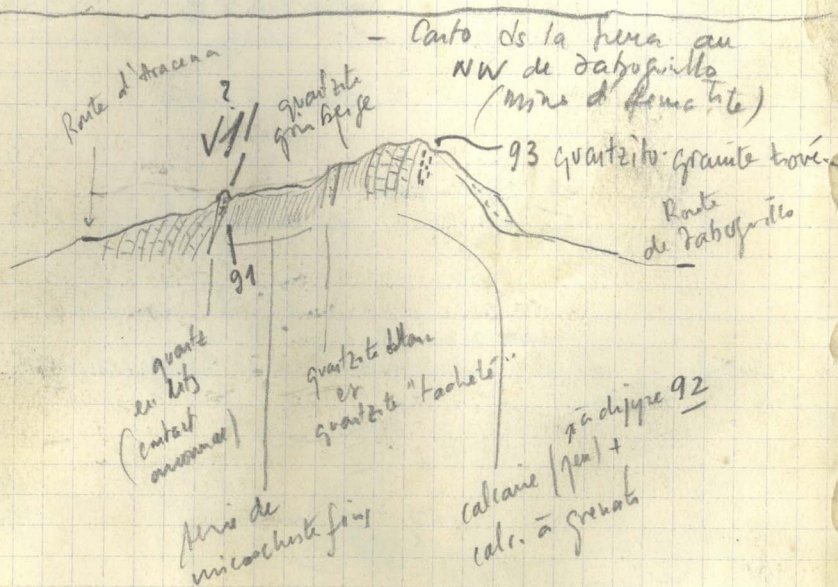 - Carto ds la Sierra au
NW de Jabuguillo
(mine d'hematite)
Route d'Aracena
?
quartzite
gris beige
93 quartzito-granite
Route
de Jabuguillo
91
quartz
en lits
(contact
quartzite blanc
et
quartzite "tacheté"
série de
micaschiste fins
à dipyre 92
calcaire (peu) +
calc. à grenats